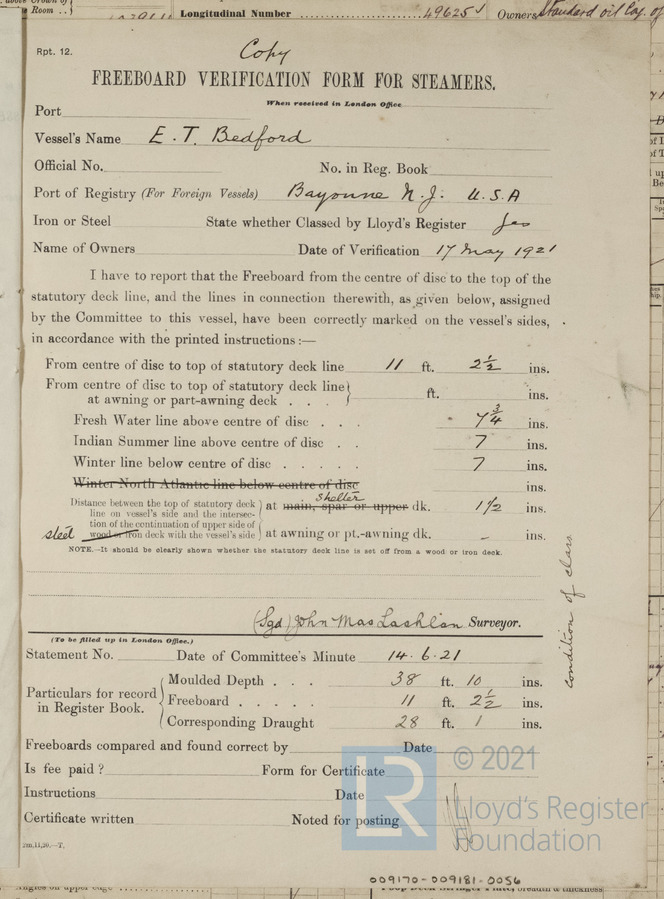 Longitudinal Number 49625 Owners Standard oil Coy. of
Rpt. 12.
Copy
FREEBOARD VERIFICATION FORM FOR STEAMERS.
When received in London Office
Port
Vessel's Name E. T. Bedford
Official No. No. in Reg. Book
Port of Registry (For Foreign Vessels) Bayonne N.J. U.S.A
Iron or Steel State whether Classed by Lloyd's Register Yes
Name of Owners Date of Verification 17 May 1921
I have to report that the Freeboard from the centre of disc to the top of the
statutory deck line, and the lines in connection therewith, as given below, assigned
by the Committee to this vessel, have been correctly marked on the vessel's sides,
in accordance with the printed instructions:—
From centre of disc to top of statutory deck line 11 ft. 2½ ins.
From centre of disc to top of statutory deck line
at awning or part-awning deck . . . ft. ins.
Fresh Water line above centre of disc . . . 7¾ ins.
Indian Summer line above centre of disc . . 7 ins.
Winter line below centre of disc . . . . . 7 ins.
Winter North Atlantic line below centre of disc ins.
Distance between the top of statutory deck
line on vessel's side and the intersec-
tion of the continuation of upper side of
steel wood or iron deck with the vessel's side
shelter
at main, spar or upper dk. 1½ ins.
at awning or pt.-awning dk. – ins.
NOTE.—It should be clearly shown whether the statutory deck line is set off from a wood or iron deck.
condition of class
(Sgd) John MacLachlan Surveyor.
(To be filled up in London Office.)
Statement No. Date of Committee's Minute 14.6.21
Particulars for record
in Register Book.
Moulded Depth . . . 38 ft. 10 ins.
Freeboard . . . . . 11 ft. 2½ ins.
Corresponding Draught 28 ft. 1 ins.
Freeboards compared and found correct by Date
Is fee paid? Form for Certificate
Instructions Date
Certificate written Noted for posting
2m,11,20.—T.
© 2021
LR
Lloyd's Register
Foundation
009170-009181-0056